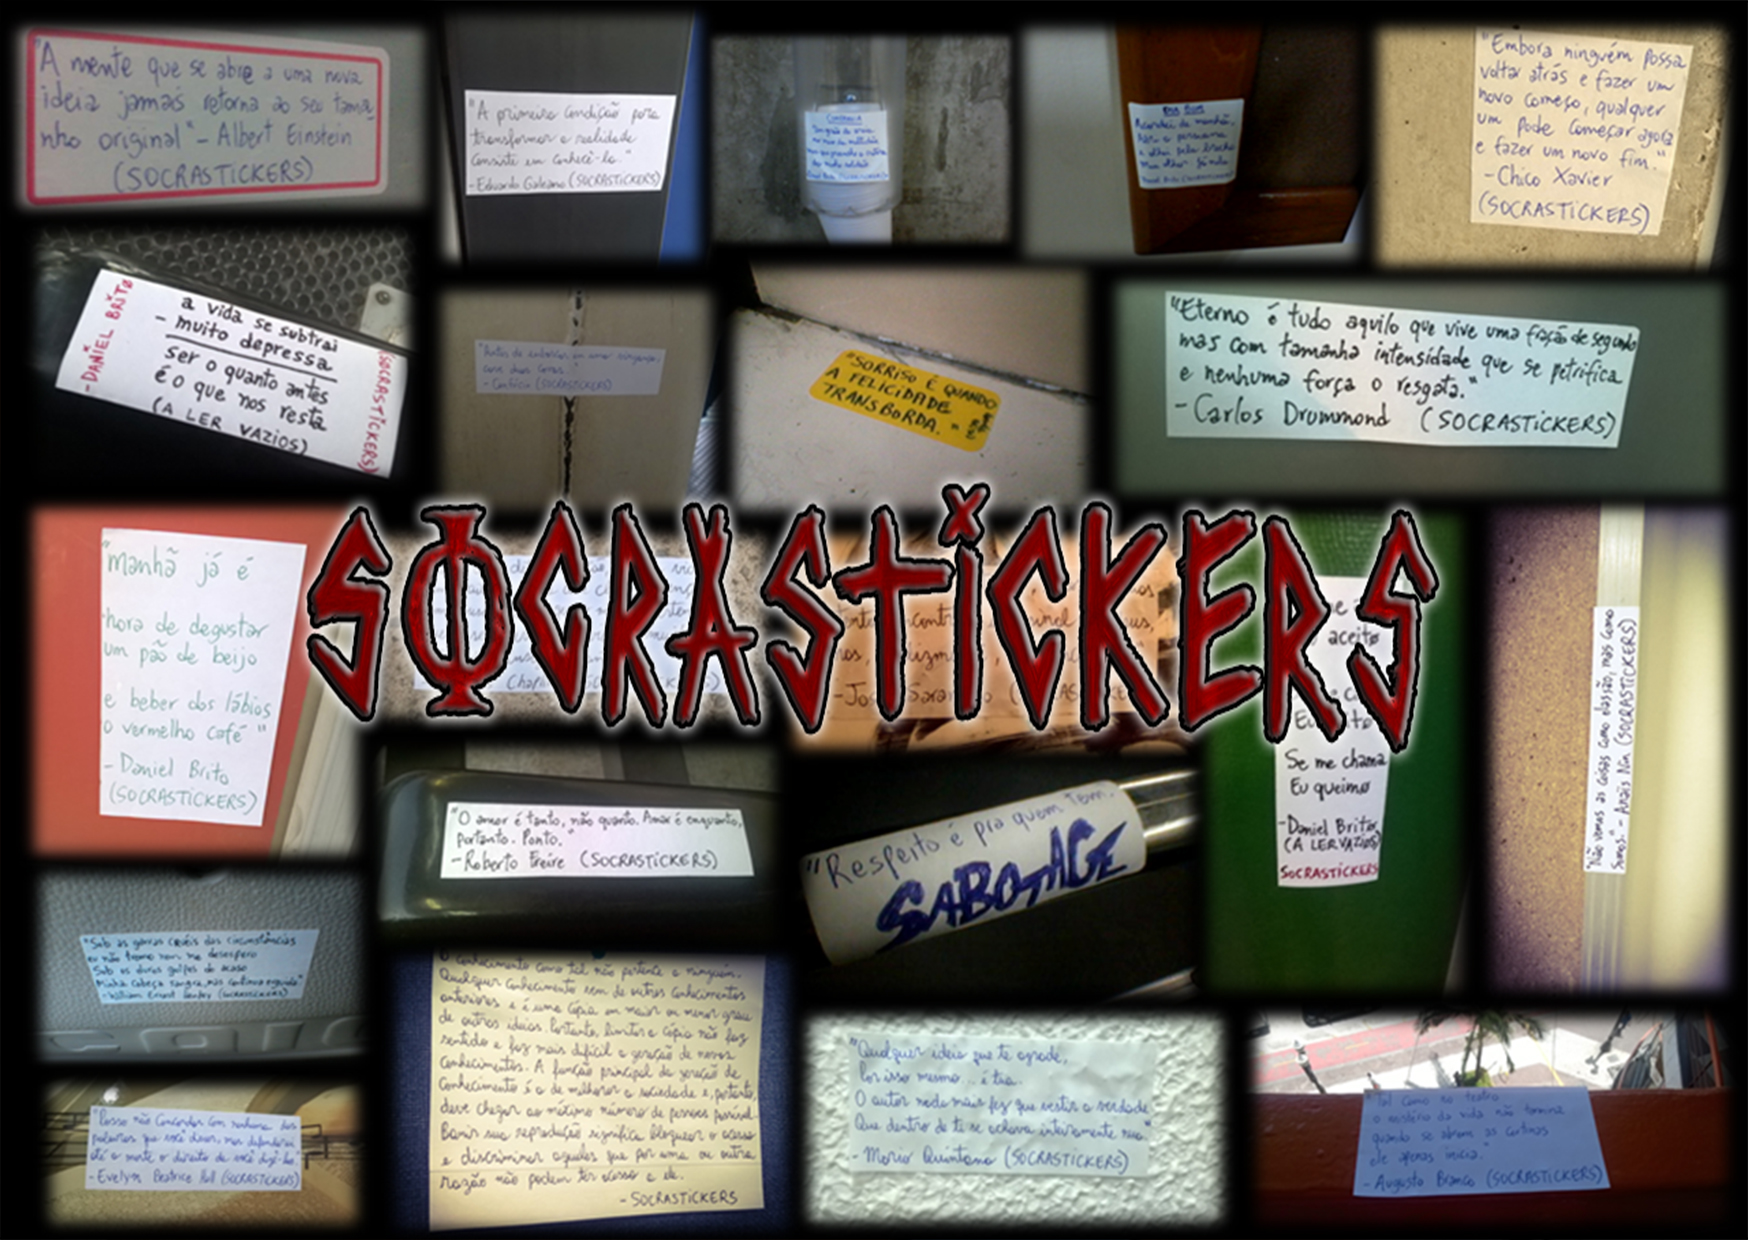 "A mente que se abre a uma nova
ideia jamais retorna ao seu tama
nho original" - Albert Einstein
(SOCRASTiCKERS)
"A primeira condição para
transformar a realidade
consiste em conhecê-la."
- Eduardo Galeano (SOCRASTiCKERS)
Acordei de manhã,
"Embora ninguém possa
voltar atrás e fazer um
novo começo, qualquer
um pode começar agora
e fazer um novo fim."
- Chico Xavier
(SOCRASTiCKERS)
- DANiEL BRiTO
a vida se subtrai
- muito depressa
ser o quanto antes
é o que nos resta
(A LER VAZiOS)
(SOCRASTiCKERS)
"Antes de embarcar em
cave duas covas."
- Confúcio (SOCRASTiCKERS)
"SORRISO É QUANDO
A FELICIDADE
TRANSBORDA."
"Eterno é tudo aquilo que vive uma fração de segundo
mas com tamanha intensidade que se petrifica
e nenhuma força o resgata."
- Carlos Drummond (SOCRASTiCKERS)
SOCRASTiCKERS
"manhã já é
hora de degustar
um pão de beijo
e beber dos lábios
o vermelho café"
- Daniel Brito
(SOCRASTiCKERS)
aceito
Se me chama
Eu queimo
- Daniel Brito
(A LER VAZiOS)
SOCRASTiCKERS
"Não vemos as coisas como elas são, mas como
somos." - Anaïs Nin (SOCRASTiCKERS)
"O amor é tanto, não quanto. Amar é enquanto,
portanto. Ponto."
- Roberto Freire (SOCRASTiCKERS)
"Respeito é pra quem tem."
SABOTAGE
"Sob as garras cruéis das circunstâncias
eu não tremo nem me desespero
Sob os duros golpes do acaso
Minha cabeça sangra, mas continua erguida"
- William Ernest Henley (SOCRASTiCKERS)
O conhecimento como tal não pertence a ninguém.
Qualquer conhecimento vem de outros conhecimentos
anteriores e é uma cópia em maior ou menor grau
de outras ideias. Portanto, limitar a cópia não faz
sentido e faz mais difícil a geração de novos
conhecimentos. A função principal da geração de
conhecimento é a de melhorar a sociedade e, portanto,
deve chegar ao máximo número de pessoas possível.
Banir sua reprodução significa bloquear o acesso
e discriminar aqueles que por uma ou outra
razão não podem ter acesso a ele.
- SOCRASTiCKERS
"Posso não concordar com nenhuma das
palavras que você disser, mas defenderei
até a morte o direito de você dizê-las."
- Evelyn Beatrice Hall (SOCRASTiCKERS)
"Qualquer ideia que te agrade,
Por isso mesmo... é tua.
O autor nada mais fez que vestir a verdade
Que dentro de ti se achava inteiramente nua."
- Mario Quintana (SOCRASTiCKERS)
"Tal como no teatro
o mistério da vida não termina
quando se abrem as cortinas
ele apenas inicia."
- Augusto Branco (SOCRASTiCKERS)